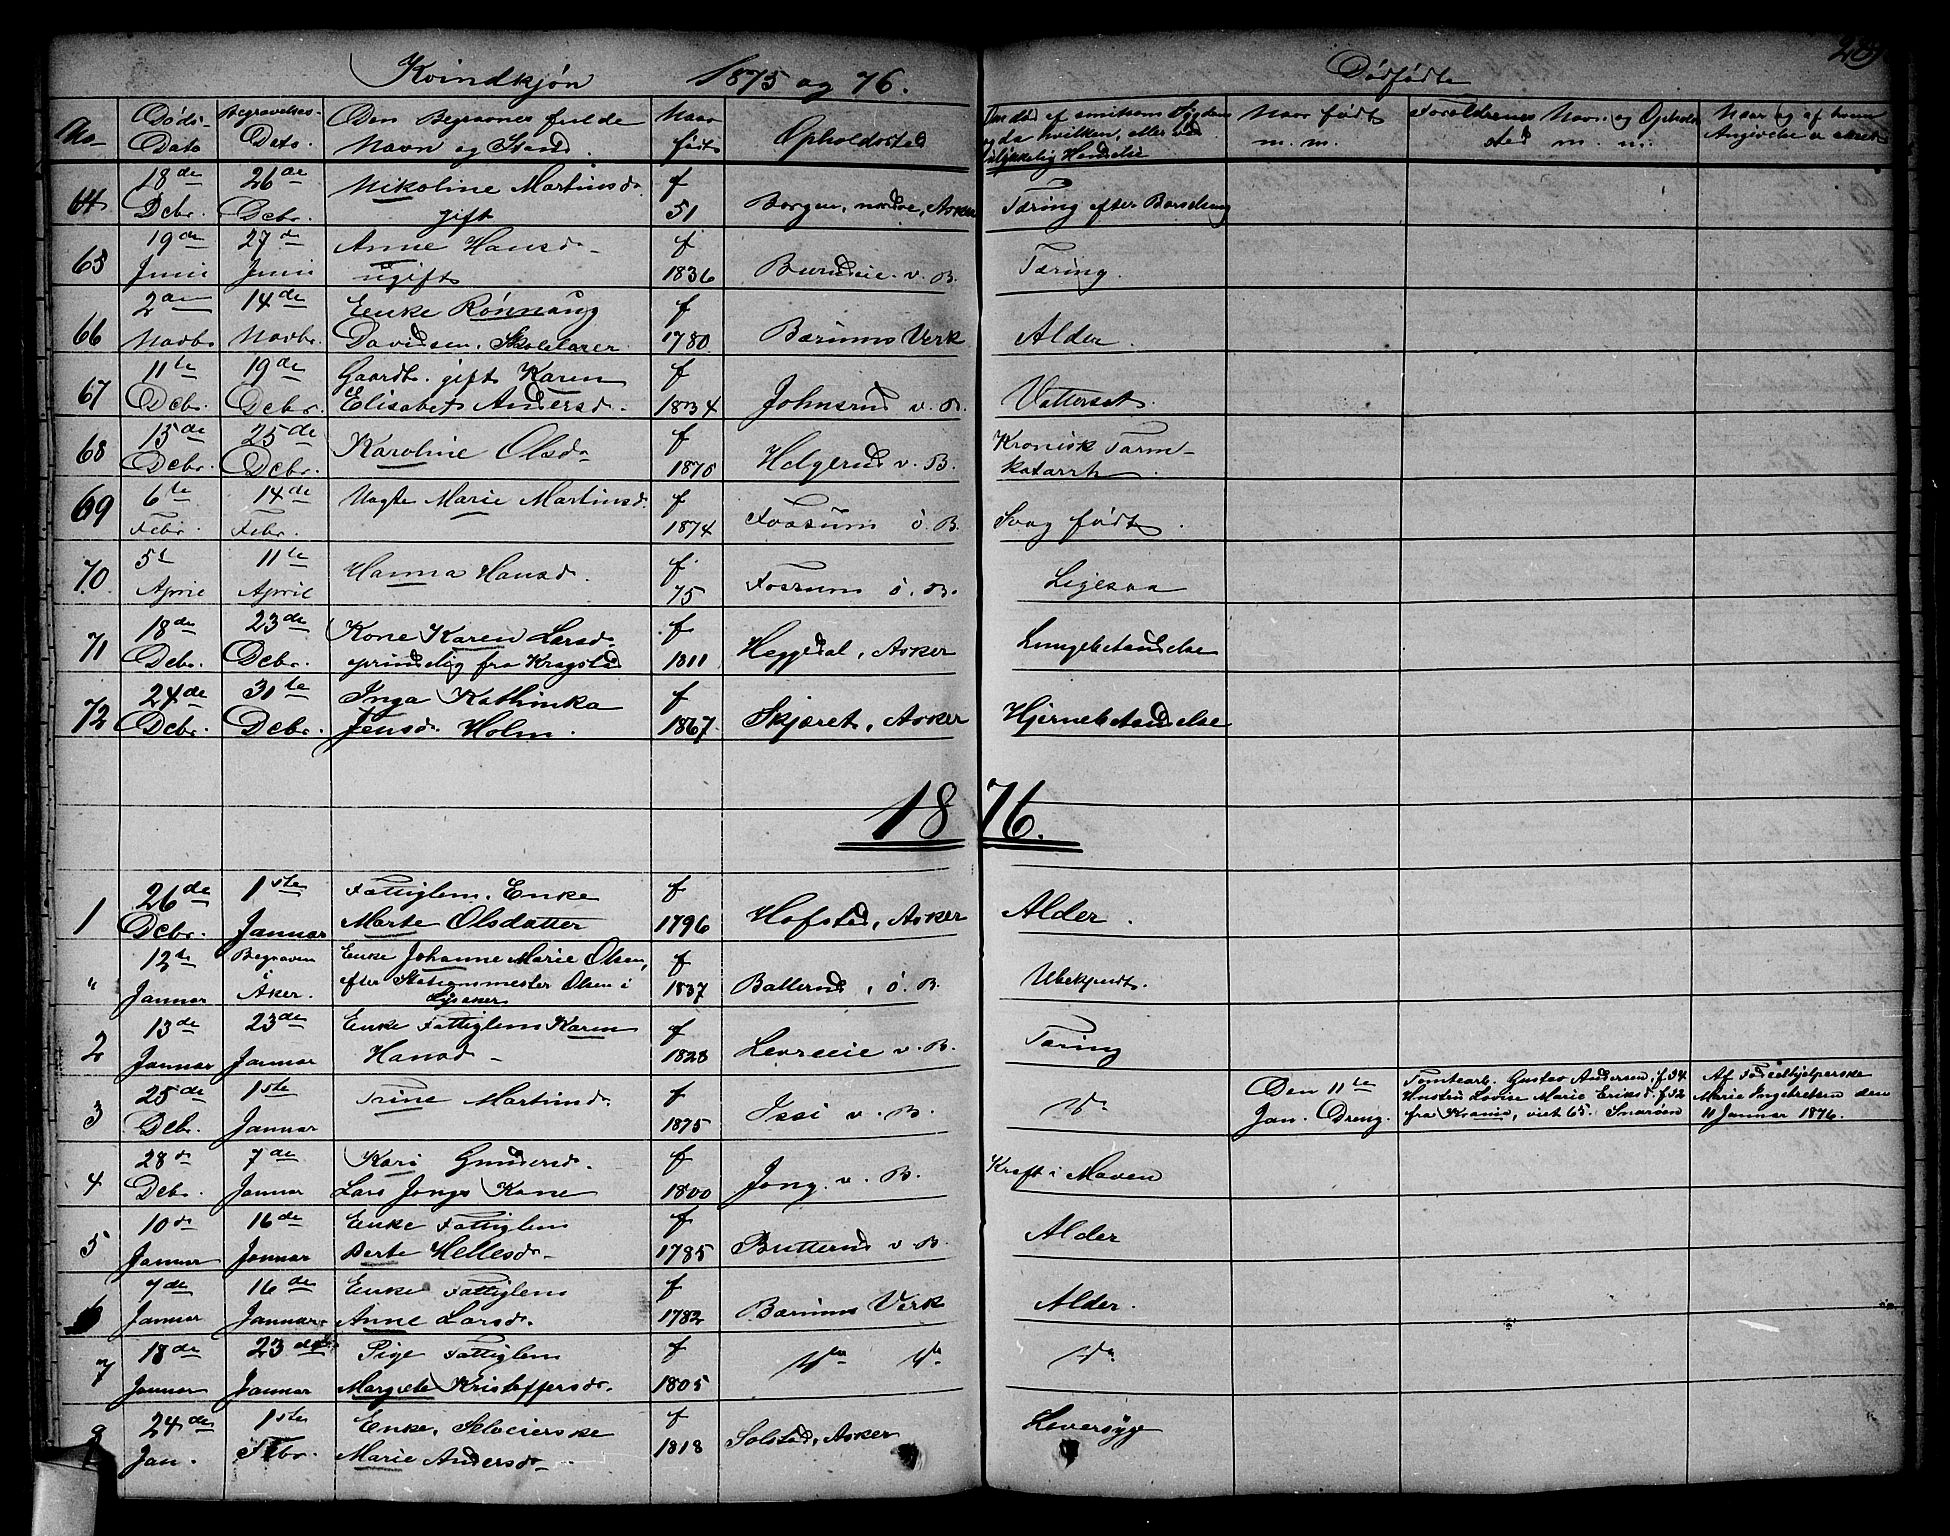 Kvindkjøn 1875 og 76. Dødfødte 209
No Døds- Dato Begravelses- Dato. Den Begravnes fulde Navn og Stand. Naar født Opholdssted Om død af smitsom Sygdom og da hvilken, eller ved ulykkelig Hændelse Naar født m. m. Forældrenes Navn og Opholds sted m. m. Naar og af hvem Angivelse er skeet
64 18de Dcbr. 26de Dcbr. Nikoline Martinsd. gift f 51 Borgen, nordre, Asker Tæring efter Barselseng
65 19de Juni 27de Juni Anne Hansd. ugift f 1836 v. B. Tæring.
66 2den Novbr 14de Novbr. Enke Rønnaug Davidsen, Skolelærer f 1780 Bærums Verk Alder.
67 11te Dcbr. 19de Dcbr. Gaardb. gift Karen Elisabet Andersd. f 1834 Johnsrud v. B. Vattersot.
68 15de Dcbr. 25de Dcbr. Karoline Olsd. f 1875 Helgerud v. B. Kronisk Tarm- katarrh.
69 6te Febr. 14de Febr. Uægte Marie Martinsd. f 1874 Fossum ö. B. Svag født.
70. 5te April 11te April Hanna Hansd. f 75 Fossum ö. B. Ligesaa
71 18de Dcbr. 23de Dcbr. Kone Karen Larsd. oprindelig fra Kragstad f 1811 Heggedal, Asker Lungebetændelse
72 24de Dcbr. 31te Dcbr. Inga Kathinka Jensd. Holm. f 1867. Skjæret, Asker Hjernebetændelse
1876.
1 26de Dcbr. 1ste Januar Fattiglem. Enke Marte Olsdatter f 1796 Hofstad, Asker Alder.
" 12te Januar Begraven i Aker. Enke Johanne Marie Olsen, efter Stationsmester Olsen i Lysaker f 1837 Ballerud, ö. B. Ubekjendt.
2 13de Januar 23de Januar Enke Fattiglem Karen Hansd. f 1828 v. B. Tæring
3 25de Dcbr. 1ste Januar Trine Martinsd. f 1875 Issi v. B. Do Den 11te Jan. Dreng. Tomtearb. Gustav Andersen f. 34 Hustru Lovise Marie Eriksd. f. 32 fra Krania, viet 65. Snarøen Af Fødselhjelperske Marie Ingebretsen den 11 Januar 1876.
4 28de Dcbr. 7de Januar Kari Gundersd. Lars Jongs Kone f 1800 Jong. v. B. Kræft i Maven
5 10de Januar 16de Januar Enke Fattiglem Berte Hellesd. f 1785 Butterud v B. Alder
6 7de Januar 16de Januar. Enke Fattiglem Anne Larsd. f 1782 Bærums Verk Alder.
7 18de Januar 23de Januar Pige Fattiglem Margrete Kristoffersd. f 1805 Do Do Do
8 24de Jan. 1ste Febr. Enke, Selveierske Marie Andersd. f 1818 Solstad, Asker Leversyge